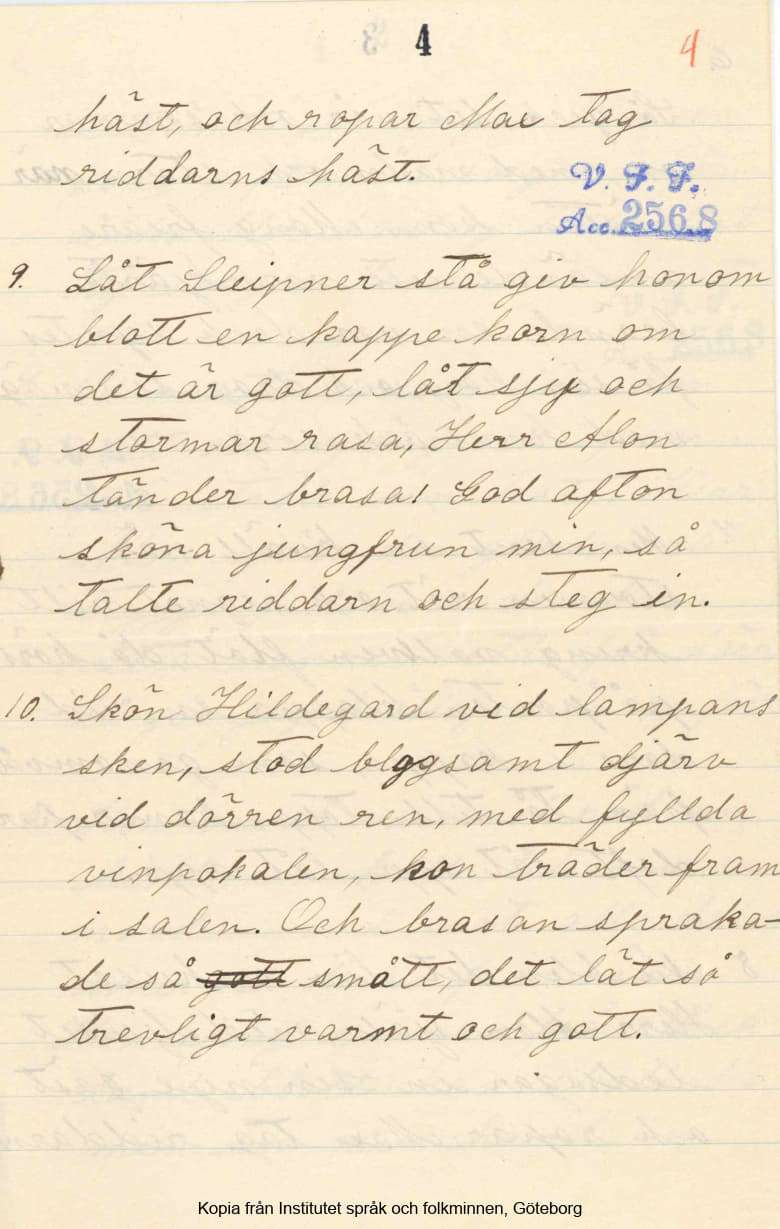 4
4
häst, och ropar Max tag
riddarns häst.
V. F. F.
Acc. 2568
9. Låt Sleipner stå giv honom
blott en kappe korn om
det är gott, låt sjy och
stormar rasa, Herr Alon
tänder brasa! God afton
sköna jungfrun min, så
talte riddarn och steg in.
10. Skön Hildegard vid lampans
sken, stod blygsamt djärv
vid dörren ren, med fyllda
vinpokalen, hon träder fram
i salen. Och brasan spraka-
de så gott smått, det lät så
trevligt varmt och gott.
Kopia från Institutet språk och folkminnen, Göteborg